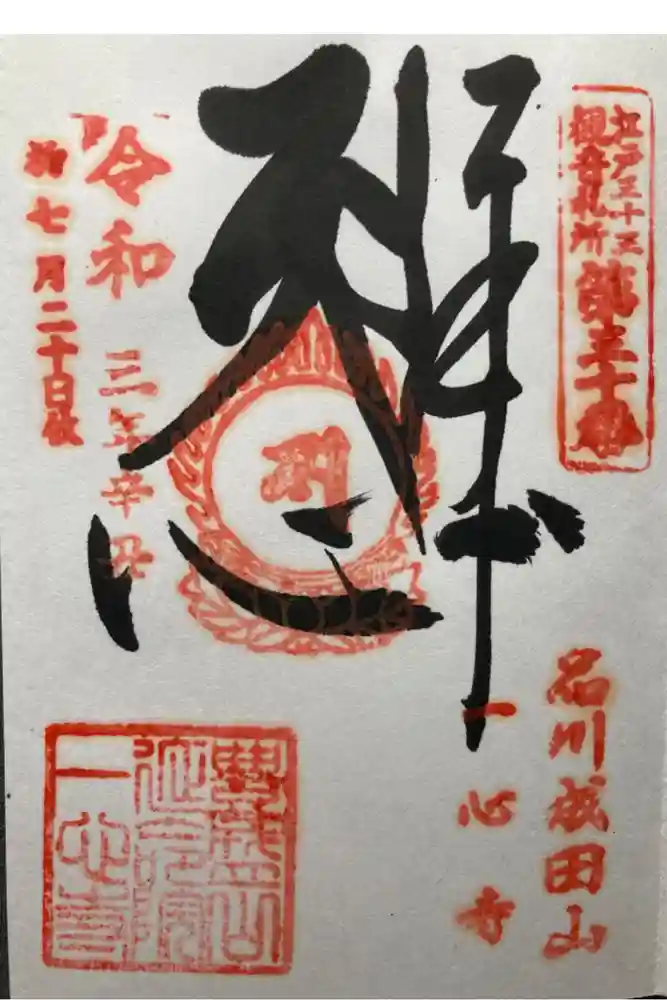 江戸三十三
觀音札所
第三十番
品川成田山
一心寺
令和三年辛丑
七月二十日
豊盛山
延命院
一心寺